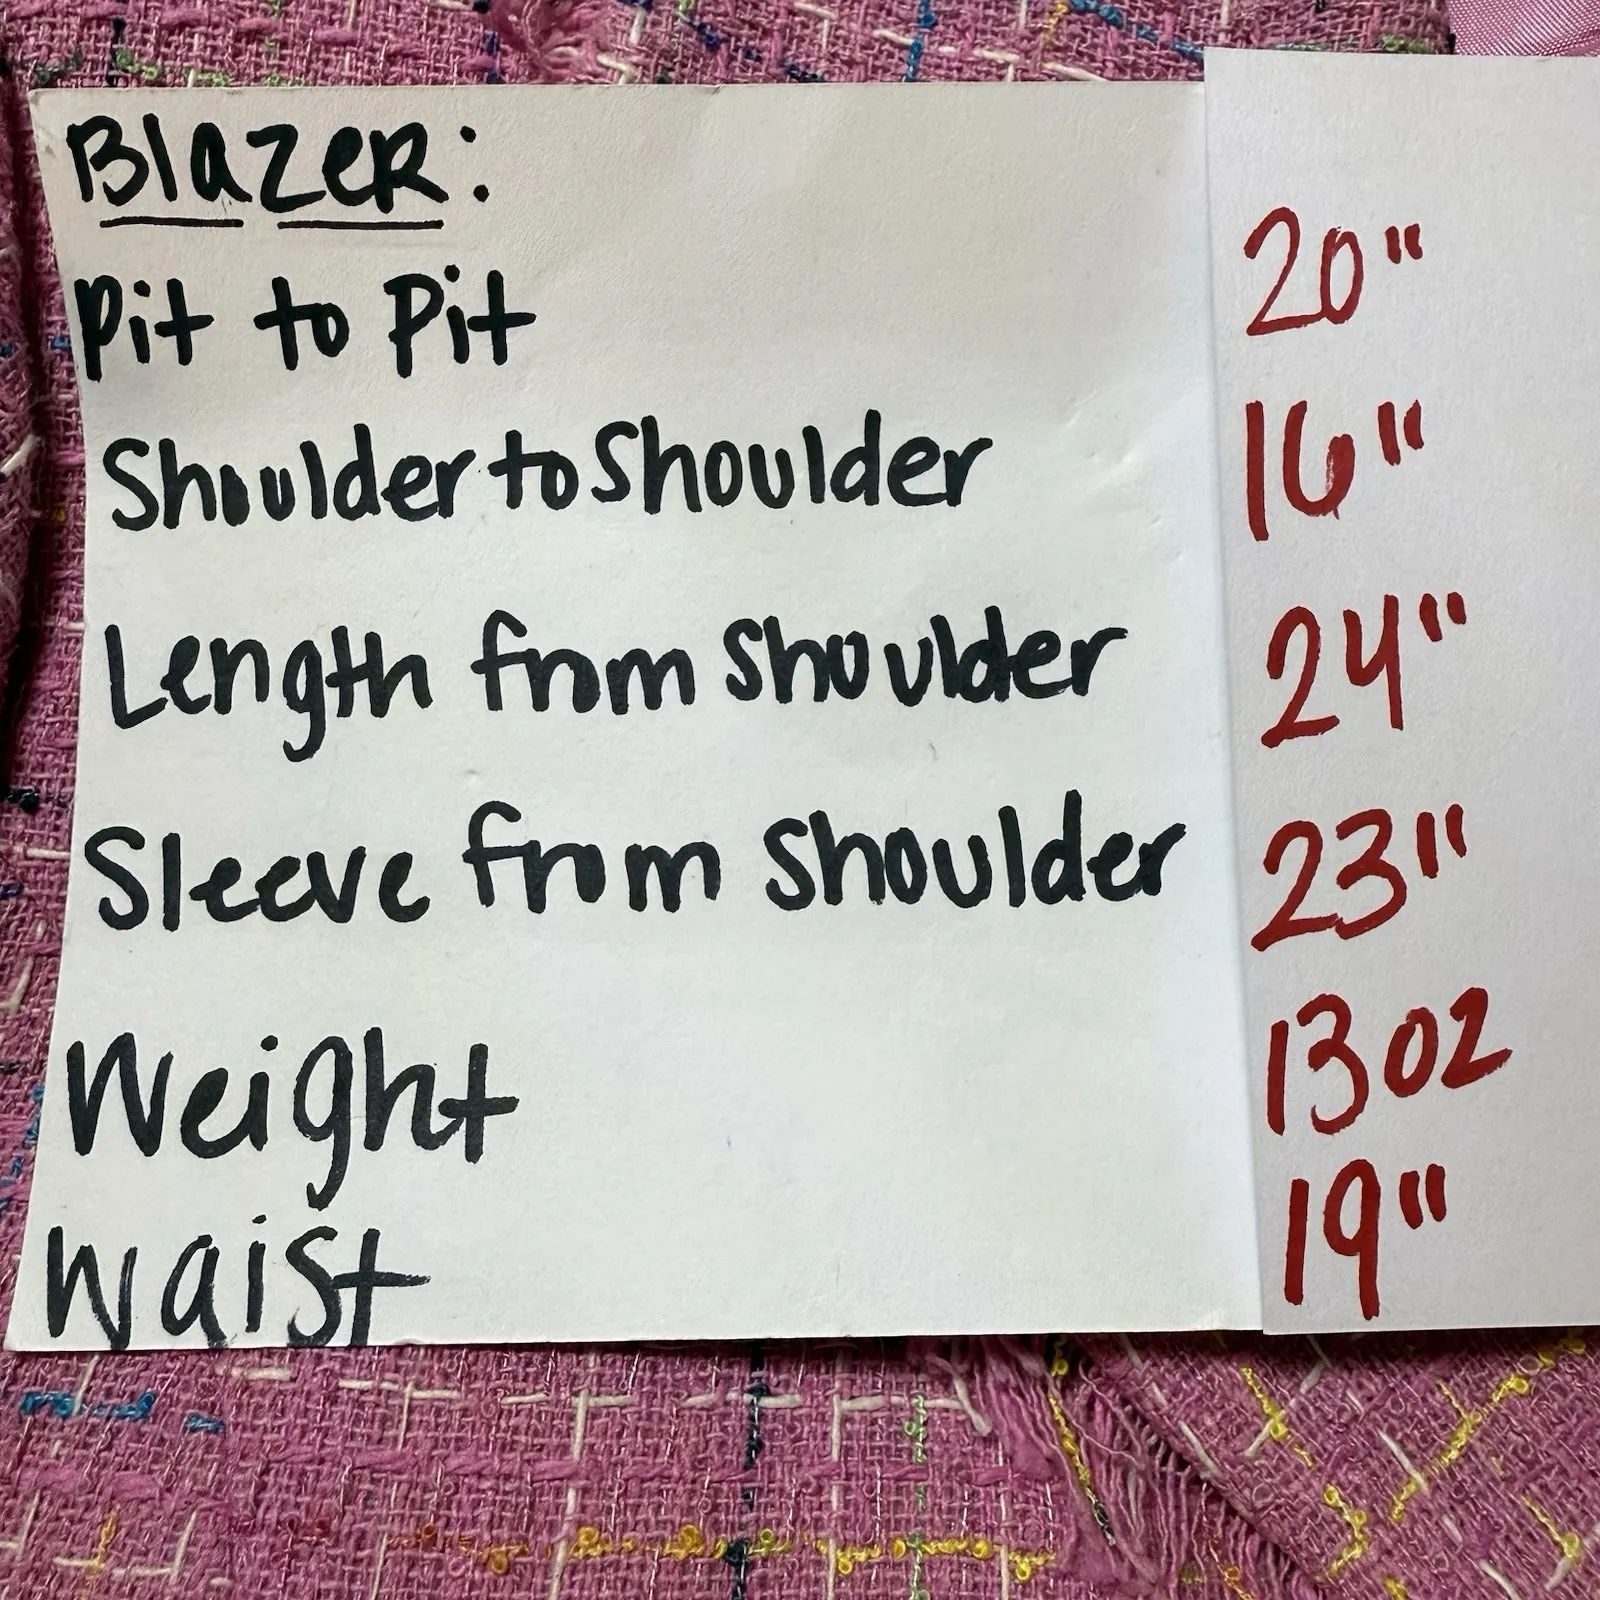 BlazeR:
Pit to Pit 20"
Shoulder to Shoulder 16"
Length from Shoulder 24"
Sleeve from Shoulder 23"
Weight 13 oz
Waist 19"